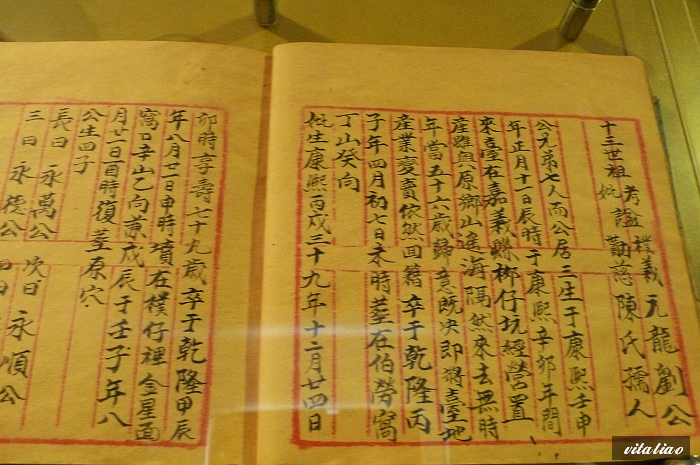 十三世祖考諡樸義元龍劉公
妣勤慈陳氏孺人
公兄弟七人而公居三生于康熙壬申
年正月十一日辰時于康熙辛卯年間
來臺在嘉義縣梆仔坑經營置
產雖與原鄉山遙海隔然來去無時
年當五十六歲歸意既决即將臺地
產業變賣依然回籍卒于乾隆丙
子年四月初七日未時葬在伯勞窩
丁山癸向
妣生康熙丙戌三十九年十二月廿四日
卯時享壽七十九歲卒于乾隆甲辰
年八月廿一日申時墳在樸仔裡金星面
窩口辛山乙向兼戊辰于壬子年八
月廿一日酉時復葬原穴
公生四子
長曰永萬公次曰永順公
三曰永德公四曰
vitaliao